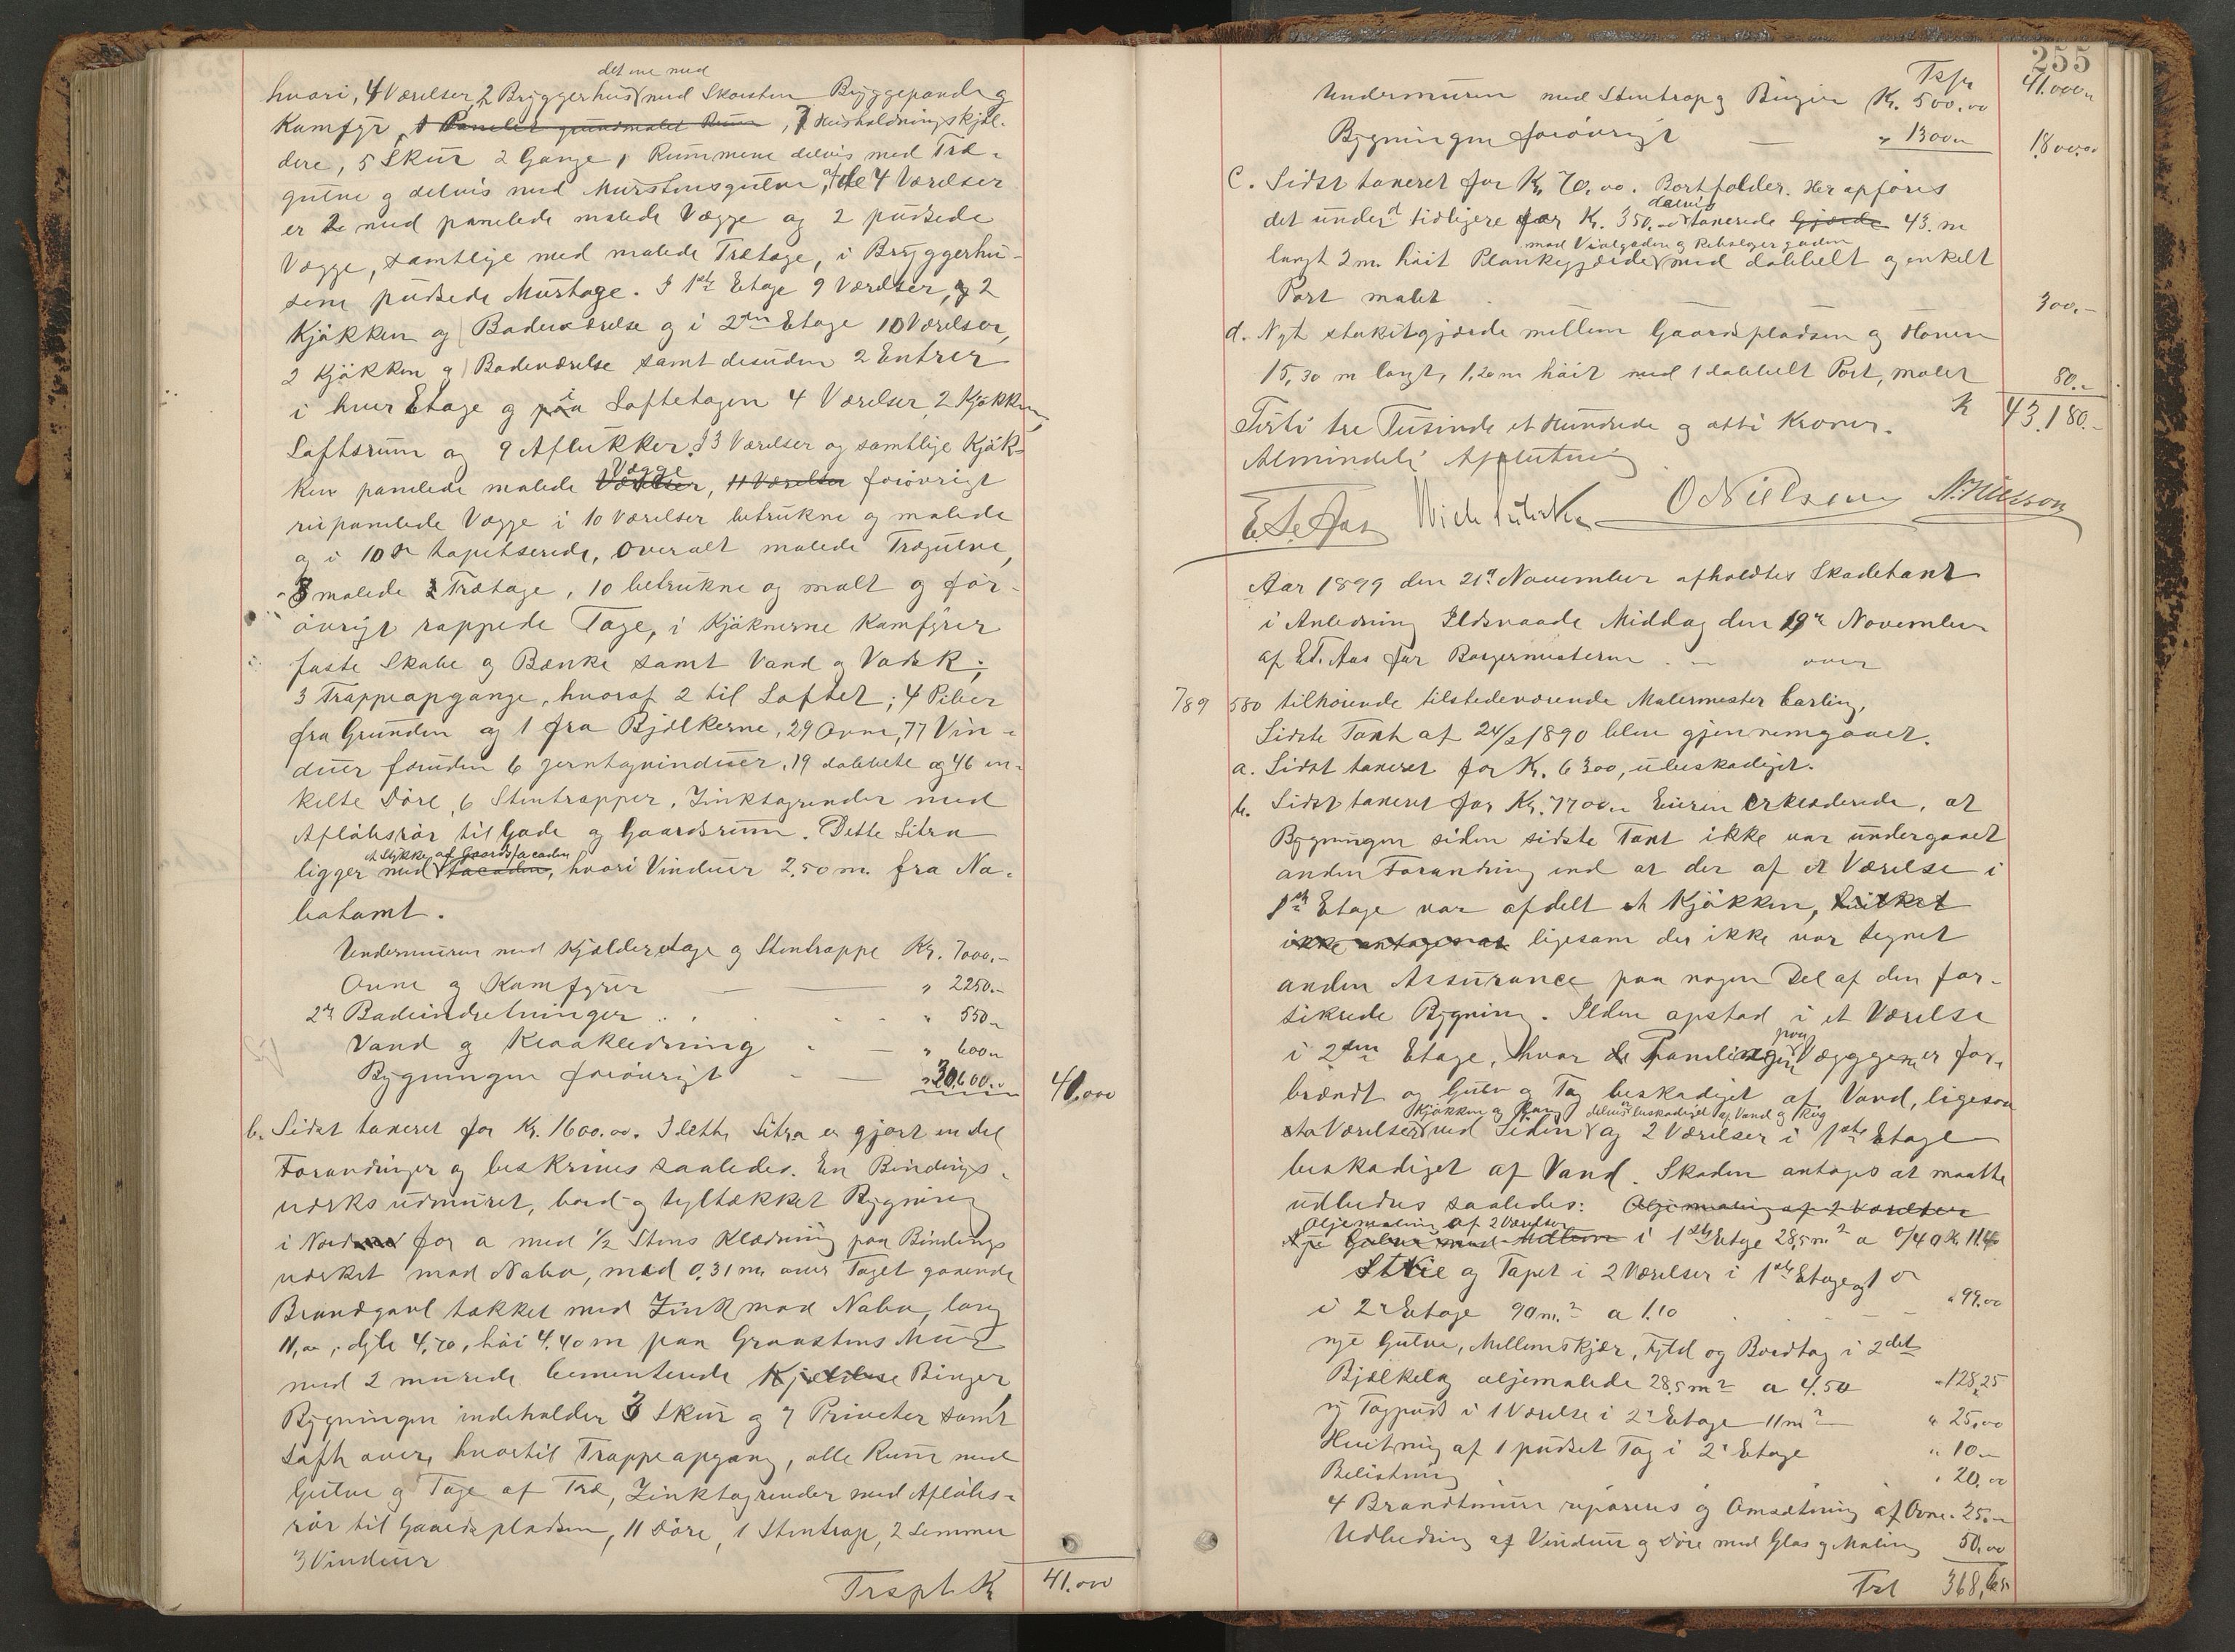 det ene med
hvori, 4 Værelser, 2 Bryggerhus med Skorsten Bryggepande og
Kamfyr, 1 Panelet grundmalet Rum, 7 Husholdningskjæl-
dere, 5 Skur 2 Gange, Rummene delvis med Træ-
gulve og delvis med Murstensgulve, af de 4 Værelser
er 2 med panelede malede Vægge og 2 pudsede
Vægge, samtlige med malede Trætage, i Bryggerhu-
sene pudsede Murtage. I 1ste Etage 9 Værelser, og 2
Kjøkken og 1 Badeværelse og i 2den Etage 10 Værelser,
2 Kjøkken og 1 Badeværelse samt desuden 2 Entreer
i hver Etage og paa i Loftetagen 4 Værelser, 2 Kjøkken,
Loftsrum og 9 Aflukker. I 3 Værelser og samtlige Kjøk-
ken panelede malede Værelser Vægge, 11 Værelser forøvrigt
rupanelede Vægge i 10 Værelser betrukne og malede
og i 10 tapetserede, overalt malede Trægulve,
8 malede Trætage, 10 betrukne og malt og før-
øvrigt rappede Tage, i Kjøknerne Kamfyrer
faste Skabe og Bænke samt Vand og Vadsk;
3 Trappeopgange, hvoraf 2 til Loftet; 4 Piber
fra Grunden og 1 fra Bjælkerne, 29 Ovne, 77 Vin-
duer foruden 6 Jerntagvinduer, 19 dobbelte og 46 en-
kelte Døre, 6 Stentrapper, Zinktagrender med
Afløbsrør til Gade og Gaardsrum. Dette Litra
et Stykke af Gaardsfacaden
ligger med Facaden, hvori Vinduer 2,50 m. fra Na-
botomt.
Undermuren med Kjælderetage og Stentrappe Kr. 7000.-
Ovne og Kamfyrer " 2250.-
2de Badeindretninger " 550.-
Vand og Kloakledning " 600.-
Bygningen forøvrigt " 30,600.- 41,000
b. Sidst taxeret for Kr. 1600.00. I dette Litra er gjort en del
Forandringer og beskrives saaledes. En Bindings-
verks udmuret, bord- og teglstækket Bygning
i Nord for a med 1/2 Stens Klædning paa Bindings
verket mod Nabo, med 0,31 m. over Taget gaaende
Brandgavl tækket med Zink mod Nabo, lang
11,00, dyb 4,70, høi 4,40 m paa Graastens Mur
med 2 murede cementerede Kjældere Binger
Bygningen indeholder 3 Skur og 7 Priveter samt
Loft over, hvortil Trappeopgang, alle Rum med
Gulve og Tage af Træ, Zinktagrender med Afløbs-
rør til Gaardspladsen, 11 Døre, 1 Stentrap, 2 Lemmer
3 Vinduer
Trspt. Kr 41.000
255
Trspt 41.000
Undermuren med Stentrap og Binger Kr. 500.00
Bygningen forøvrigt " 1300.- 1800.00
C. Sidst taxeret for Kr. 70.00. Bortfalder. Her opføres
det under d tidligere for Kr. 350.00 delvis taxerede Gjærde 43. m
mod Vinlgaden og Rebslagergaden
langt 2 m. høit Plankegjærde med dobbelt og enkelt
Port malet 300.-
d. Nyt stakitgjærde mellem Gaardspladsen og Haven
15,30 m langt, 1,20 m høit med 1 dobbelt Port, malet 80.-
Kr 43,180.-
Firti tre Tusinde et Hundrede og otti Kroner.
Almindelig Afslutning
E. T. Aas O Nielsen N. Nielsson
Aar 1899 den 21de November afholdtes Skadetaxt
i Anledning Ildsvaade Middag den 19de November
af E.T. Aas for Borgermesteren over
789 580 tilhørende tilstedeværende Malermester Carling.
Sidste Taxt af 24/2 1890 blev gjennemgaaet.
a. Sidst taxeret for Kr. 6300, ubeskadiget.
b. Sidst taxeret for Kr. 7700.- Eieren erklærede, at
Bygningen siden sidste Taxt ikke var undergaaet
anden Forandring end at der af et Værelse i
1ste Etage var afdelt et Kjøkken, hvilket
ikke antages at ligesom der ikke var tegnet
anden Assurance paa nogen Del af den for-
sikrede Bygning. Ilden opstod i et Værelse
i 2den Etage, hvor Panelingen paa Væggene er for-
brændt og Gulv og Tag beskadiget af Vand, ligesom
Kjøkken og Gang delvis beskadiget af Vand og Røg
Værelser ved Siden og 2 Værelser i 1ste Etage
beskadiget af Vand. Skaden antages at maatte
udbedres saaledes: Oljemaling af 2 Værelser
Oljemaling af 2 Værelser
Nye Gulve med Mellem i 1ste Etage 28,5 m² a 0/40 Kr. 11.40
Strie og Tapet i 2 Værelser i 1ste Etage og 1
i 2 Etage 90 m.² a 1.10 " 99.00
nye Gulve, Mellemskjær, Fyld og Bordtag i 2det
Bjælkelag oljemalede 28,5 m² a 4.50 " 128,25
ny Tagpuds i 1 Værelse i 2 Etage 11 m² " 25,00
Hvitning af 1 pudset Tag i 2 Etage " 10.-
Belistning " 20,00
4 Brandmure repareres og Omsætning af Ovne " 25.-
Udbedring af Vinduer og Døre med Glas og Maling 50,00
Trsp 368,65